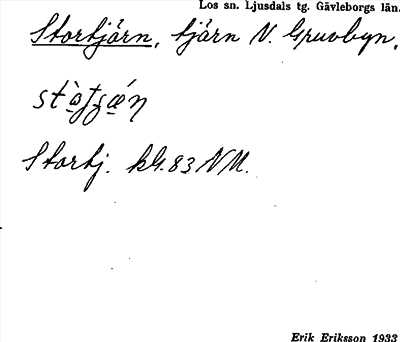 Los sn. Ljusdals tg. Gävleborgs län.
Stortjärn, tjärn V. Gruvbyn.
Stortj. kbl. 83 NM.
Erik Eriksson 1933